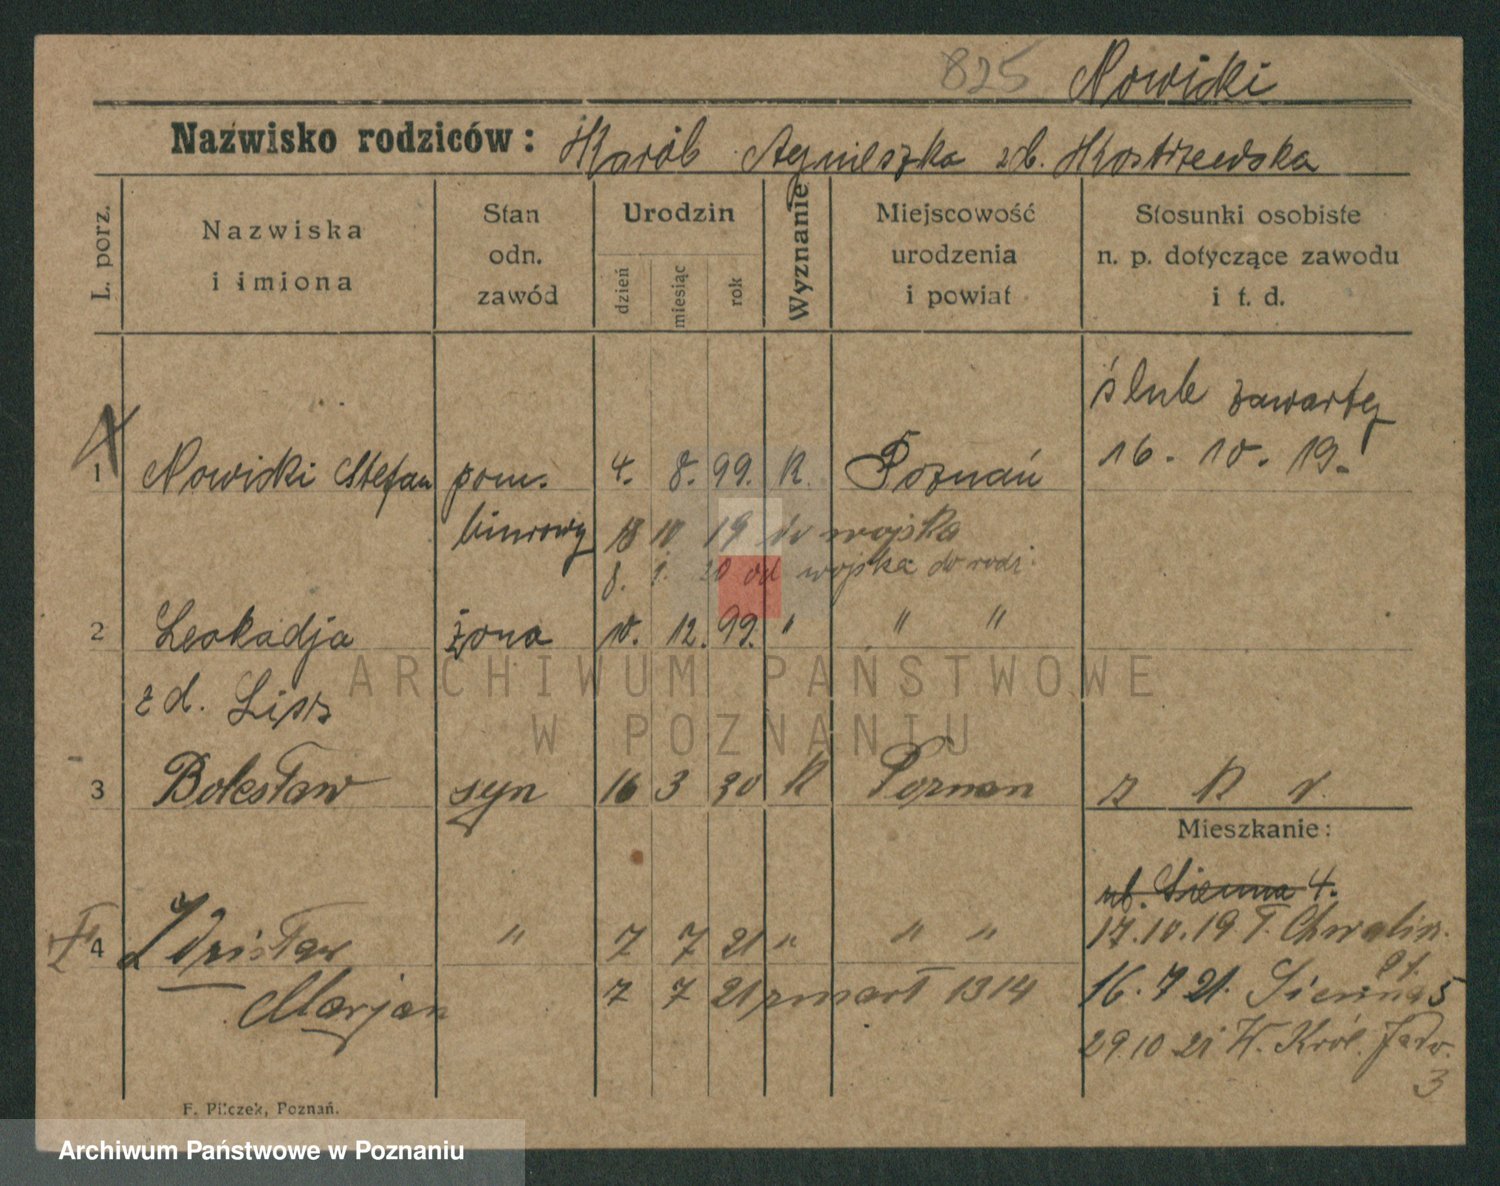 825 Nowicki
Nazwisko rodziców: Karól Agnieszka zd. Kostrzewska
L. porz.
Nazwiska
i imiona
Stan
odn.
zawód
Urodzin
dzień
miesiąc
rok
Wyznanie
Miejscowość
urodzenia
i powiat
Stosunki osobiste
n. p. dotyczące zawodu
i t. d.
ślub zawarty
16. 10. 19.
1 Nowicki Stefan pom. 4. 8. 99. K. Poznań
biurowy 18 10 19 do wojska
8. 1. 20 od wojska do rodz.
2 Leokadja żona 10. 12. 99. " " "
zd.
3 Bolesław syn 16 3 20 K Poznan
Mieszkanie:
ul. Sienna 4.
4 Zdzisław " 7 7 21 " " " 17.10.19
Marjan 7 7 21 zmarł 1314 16. 7 21. Sienna 5
29 10 21 Król. Jadw.
3
F. Pilczek, Poznań.
ARCHIWUM PAŃSTWOWE
W POZNANIU
Archiwum Państwowe w Poznaniu